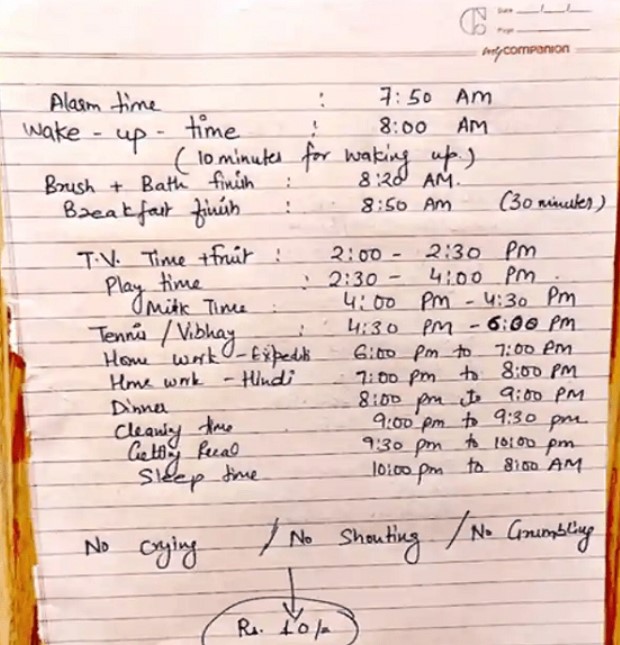 Date
Page
my companion
Alarm time : 7:50 AM
Wake - up - time : 8:00 AM
(10 minutes for waking up.)
Brush + Bath finish : 8:20 AM.
Breakfast finish : 8:50 AM (30 minutes)
T.V. Time + fruit : 2:00 - 2:30 PM
Play time : 2:30 - 4:00 PM .
Milk Time : 4:00 PM - 4:30 PM
Tennis / Vibhay : 4:30 PM - 6:00 PM
Home work - 6:00 Pm to 7:00 Pm
Home work - Hindi 7:00 Pm to 8:00 PM
Dinner 8:00 pm to 9:00 PM
Cleaning time 9:00 pm to 9:30 pm
9:30 pm to 10:00 pm
Sleep time 10:00 pm to 8:00 AM
No crying / No Shouting / No Grumbling
Rs. 10/=